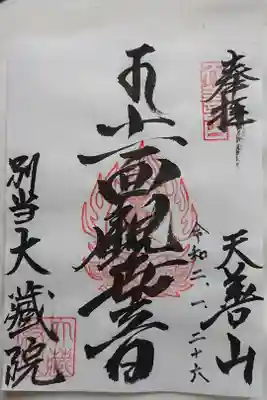 奉拝
天善山
令和二、一、二十六
面觀世音
別当大藏院